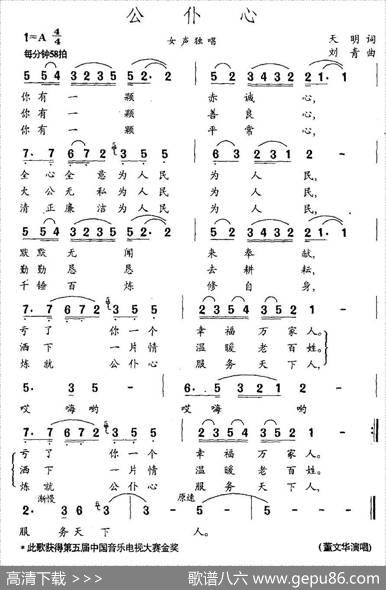 公仆心
1=A 4/4
女声独唱
天明词
每分钟58拍
刘青曲
5 5 4 3 2 3 5 5 2· 2 | 5 2 3 4 3 2 5 2 - |
你有一颗 赤诚心，
你有一颗 善良心，
你有一颗 平常心，
7· 7· 6 7 2 3 5 5 | 6 3 2 3 1 2 - |
全心全意为人民 为人民，
大公无私为人民 为人民，
清正廉洁为人民 为人民，
5 5 4 3 2 3 5 5 2· 2 | 5 2 3 4 3 2 5 2 - |
默默无闻 来奉献，
勤勤恳恳 去耕耘，
千锤百炼 修自身，
7· 7· 6 7 2 3 5 5 | 2 3 5 4 3 5 2 1 - |
亏了你一个 幸福万家人。
洒下一片情 温暖老百姓。
炼就公仆心 服务天下人。
5· 3 2 - | 6· 5 3 2 1 2 - |
哎嗨哟 哎嗨哟
7· 7 6 7 2 3 5 5 | 2 3 5 4 3 5 2 1 - |
亏了你一个 幸福万家人。
洒下一片情 温暖老百姓。
炼就公仆心 服务天下人，
渐慢 原速
服务天下人。
*此歌获得第五届中国音乐电视大赛金奖
(董文华演唱)
高清下载 >>>
歌谱八六 @ www.gepu86.com